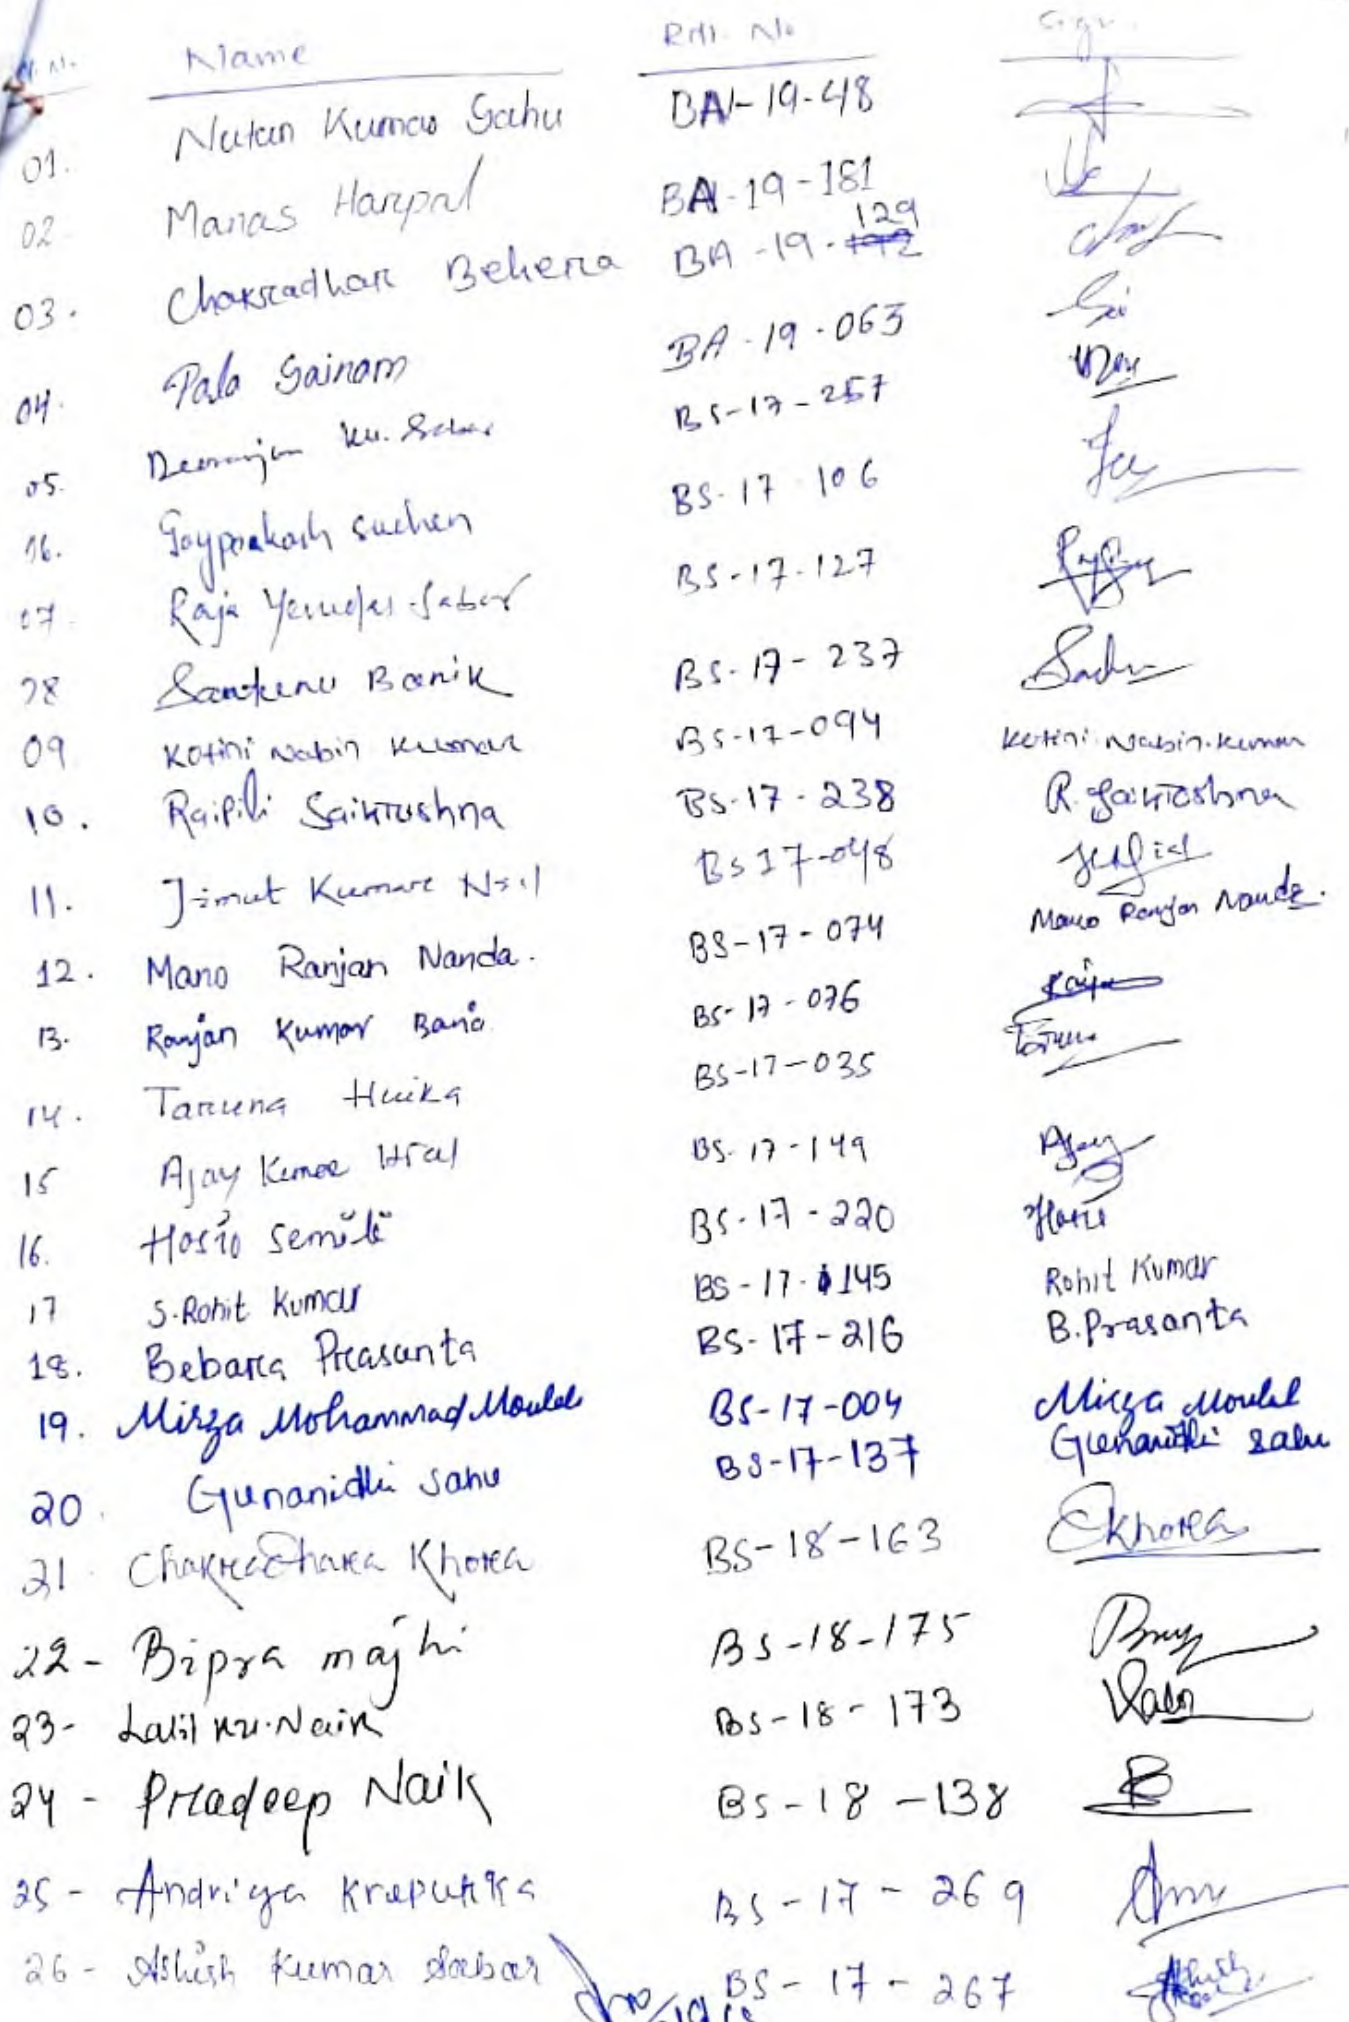 Sl. No. Name Roll. No Sign.
01. Nutan Kumar Sahu BA-19-48
02 Manas Harpal BA-19-181
03. Chakradhar Behera BA-19-129
04. Pala Sairam BA-19-063 Sai
05. Ku. Sabar BS-17-257
06. Joyprakash Suchen BS-17-106
07. Raja Yesudas Sabar BS-17-127
08 Santanu Barik BS-17-237
09 Kotini Nabin Kumar BS-17-094 Kotini Nabin Kumar
10. Raipili Saikrushna BS-17-238 R. Saikrushna
11. Jimut Kumar BS 17-048
12. Mano Ranjan Nanda. BS-17-074 Mano Ranjan Nanda.
13. Ranjan Kumar BS-17-076
14. Taruna Huika BS-17-035
15 Ajay Kumar BS-17-149 Ajay
16. BS-17-220
17 S. Rohit Kumar BS-17-145 Rohit Kumar
18. Bebarta Prasanta BS-17-216 B. Prasanta
19. Mirza Mohammad BS-17-004 Mirza
20. Gunanidhi Sahu BS-17-137 Gunanidhi Sahu
21. Chakradhara Khora BS-18-163 Khora
22- Bipra majhi BS-18-175
23- Lalit Ku. Naik BS-18-173
24- Pradeep Naik BS-18-138
25- Andriya BS-17-269
26- Ashish Kumar Sabar BS-17-267 Ashish